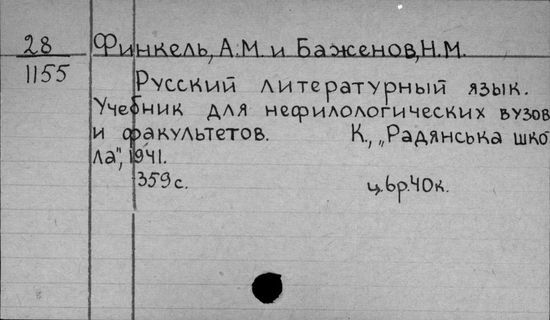 28 Финкель, А.М. и Баженов, Н.М.
1155 Русский литературный язык.
Учебник для нефилологических вузов
и факультетов. К., „Радянська шко
ла", 1941.
359 с. ц. 6р. 40к.